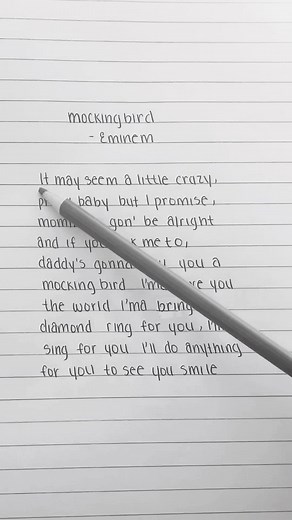 mockingbird
- Eminem
It may seem a little crazy,
baby but I promise,
gon' be alright
and if me to,
daddy's you a
mocking bird you
the world I'ma
diamond ring for you,
sing for you I'll do anything
for you to see you smile